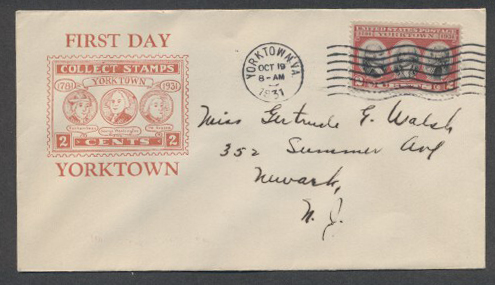 FIRST DAY
COLLECT STAMPS
YORKTOWN
1781 1931
2 CENTS 2
YORKTOWN
YORKTOWN, VA.
OCT 19
8-AM
1931
UNITED STATES POSTAGE
YORKTOWN
Miss Gertrude E. Walsh
352 Summer Ave
Newark,
N. J.